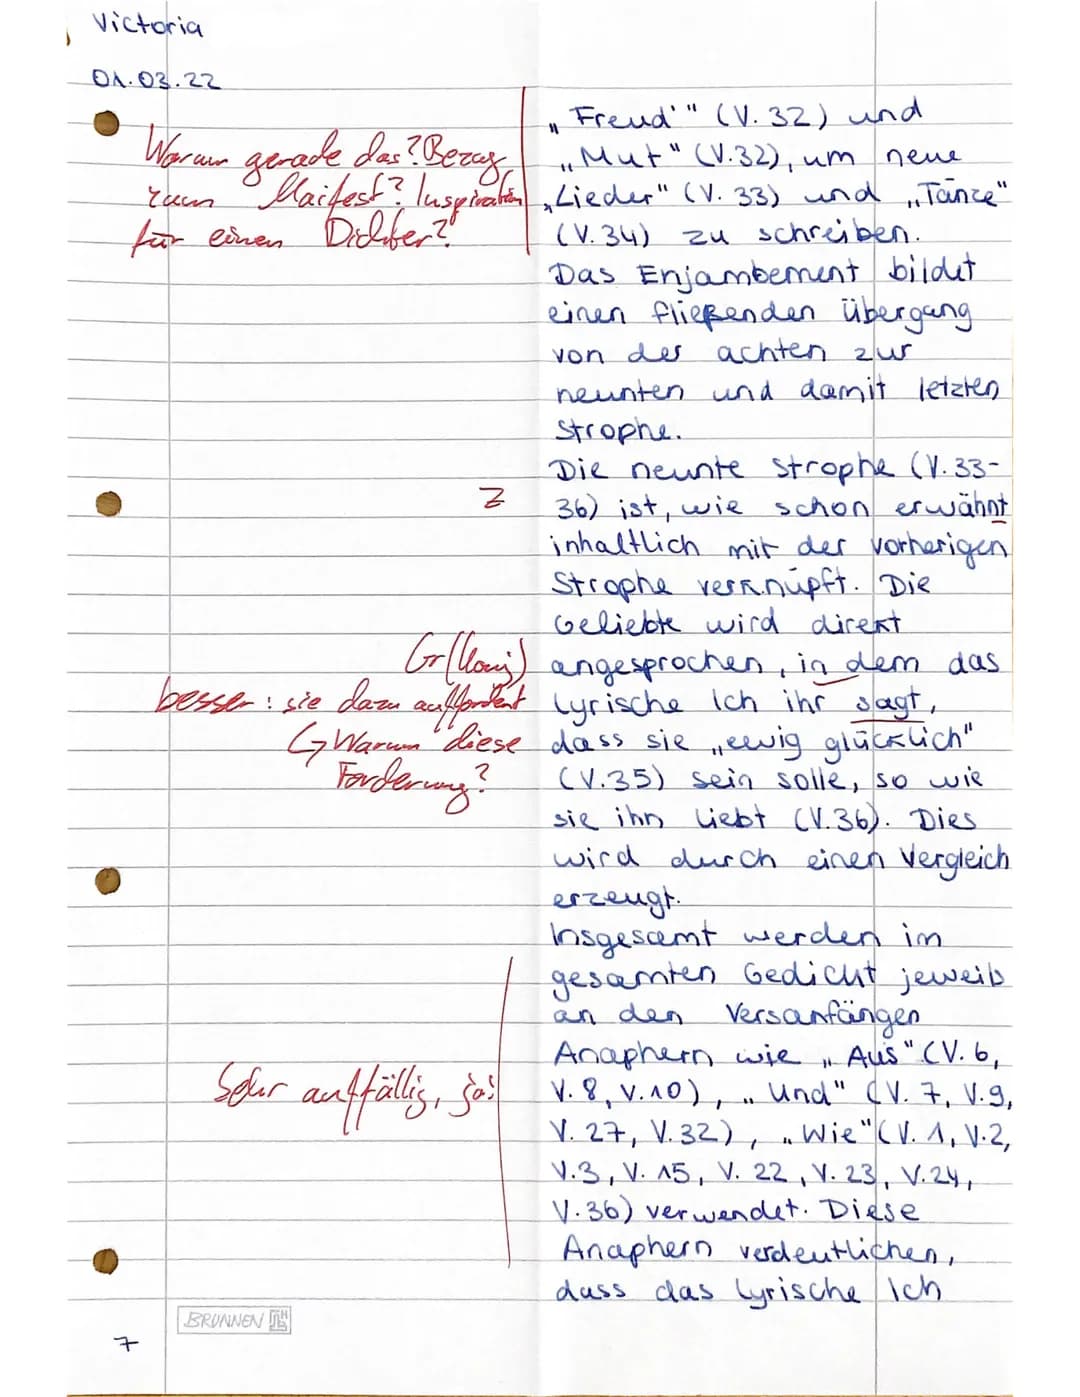 Victoria
01.03.22
Warum gerade das? Bezug
zum Maifest? Inspiration
für einen Dichter?
„Freud'" (V. 32) und
„Mut" (V.32), um neue
„Lieder" (V. 33) und „Tänze"
(V. 34) zu schreiben.
Das Enjambement bildet
einen fließenden Übergang
von der achten zur
neunten und damit letzten
Strophe.
Die neunte Strophe (V. 33-
Z
36) ist, wie schon erwähnt
inhaltlich mit der vorherigen
Strophe verknüpft. Die
Geliebte wird direkt
Gr(Konj)
angesprochen, in dem das
besser: sie dazu auffordert
lyrische Ich ihr sagt,
↳ Warum diese
Forderung?
dass sie „ewig glücklich"
(V.35) sein solle, so wie
sie ihn liebt (V.36). Dies
wird durch einen Vergleich
erzeugt.
Insgesamt werden im
gesamten Gedicht jeweils
an den Versanfängen
Anaphern wie „Aus" (V. 6,
Sehr auffällig, ja!
V. 8, V.10), „Und" (V. 7, V.9,
V. 27, V.32), „Wie" (V. 1, V.2,
V.3, V. 15, V. 22, V. 23, V.24,
V.36) verwendet. Diese
Anaphern verdeutlichen,
dass das lyrische Ich
BRUNNEN
7